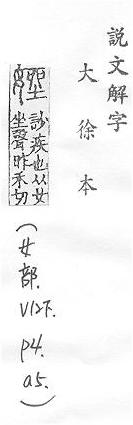 説文解字
大徐本
㛗 訬疾也从女
坐聲昨禾切
(女部. V12下. p4. a5.)